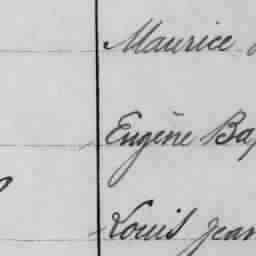 Maurice
Eugène Ba
Louis Jean